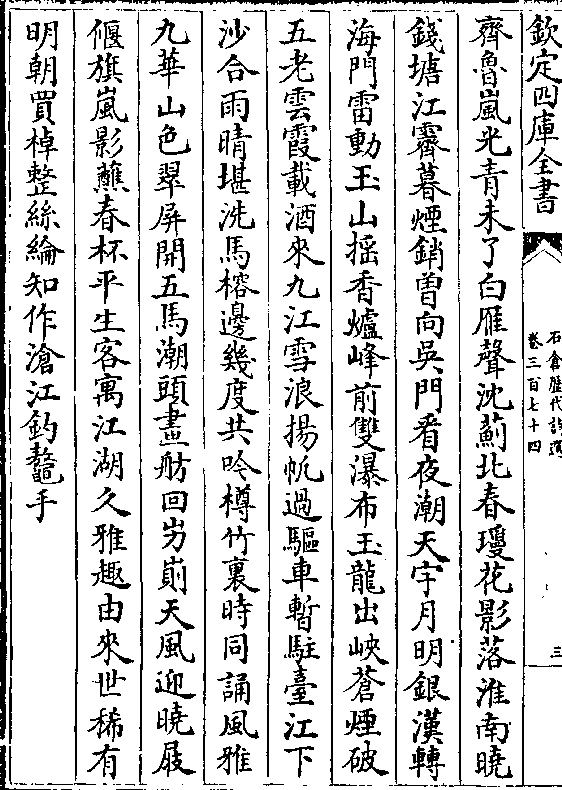 欽定四庫全書
石倉歷代詩選
卷三百七十四
三
齊魯嵐光青未了白雁聲沈薊北春瓊花影落淮南曉
錢塘江霽暮煙銷曾向吳門看夜潮天宇月明銀漢轉
海門雷動玉山揺香爐峰前雙瀑布玉龍出峽蒼煙破
五老雲霞載酒來九江雪浪揚帆過驅車暫駐臺江下
沙合雨晴堪洗馬榕邊幾度共吟樽竹裏時同誦風雅
九華山色翠屏開五馬潮頭畫舫回屴崱天風迎曉屐
偃旗嵐影蘸春杯平生客寓江湖久雅趣由來世稀有
明朝買棹整絲綸知作滄江釣鼇手